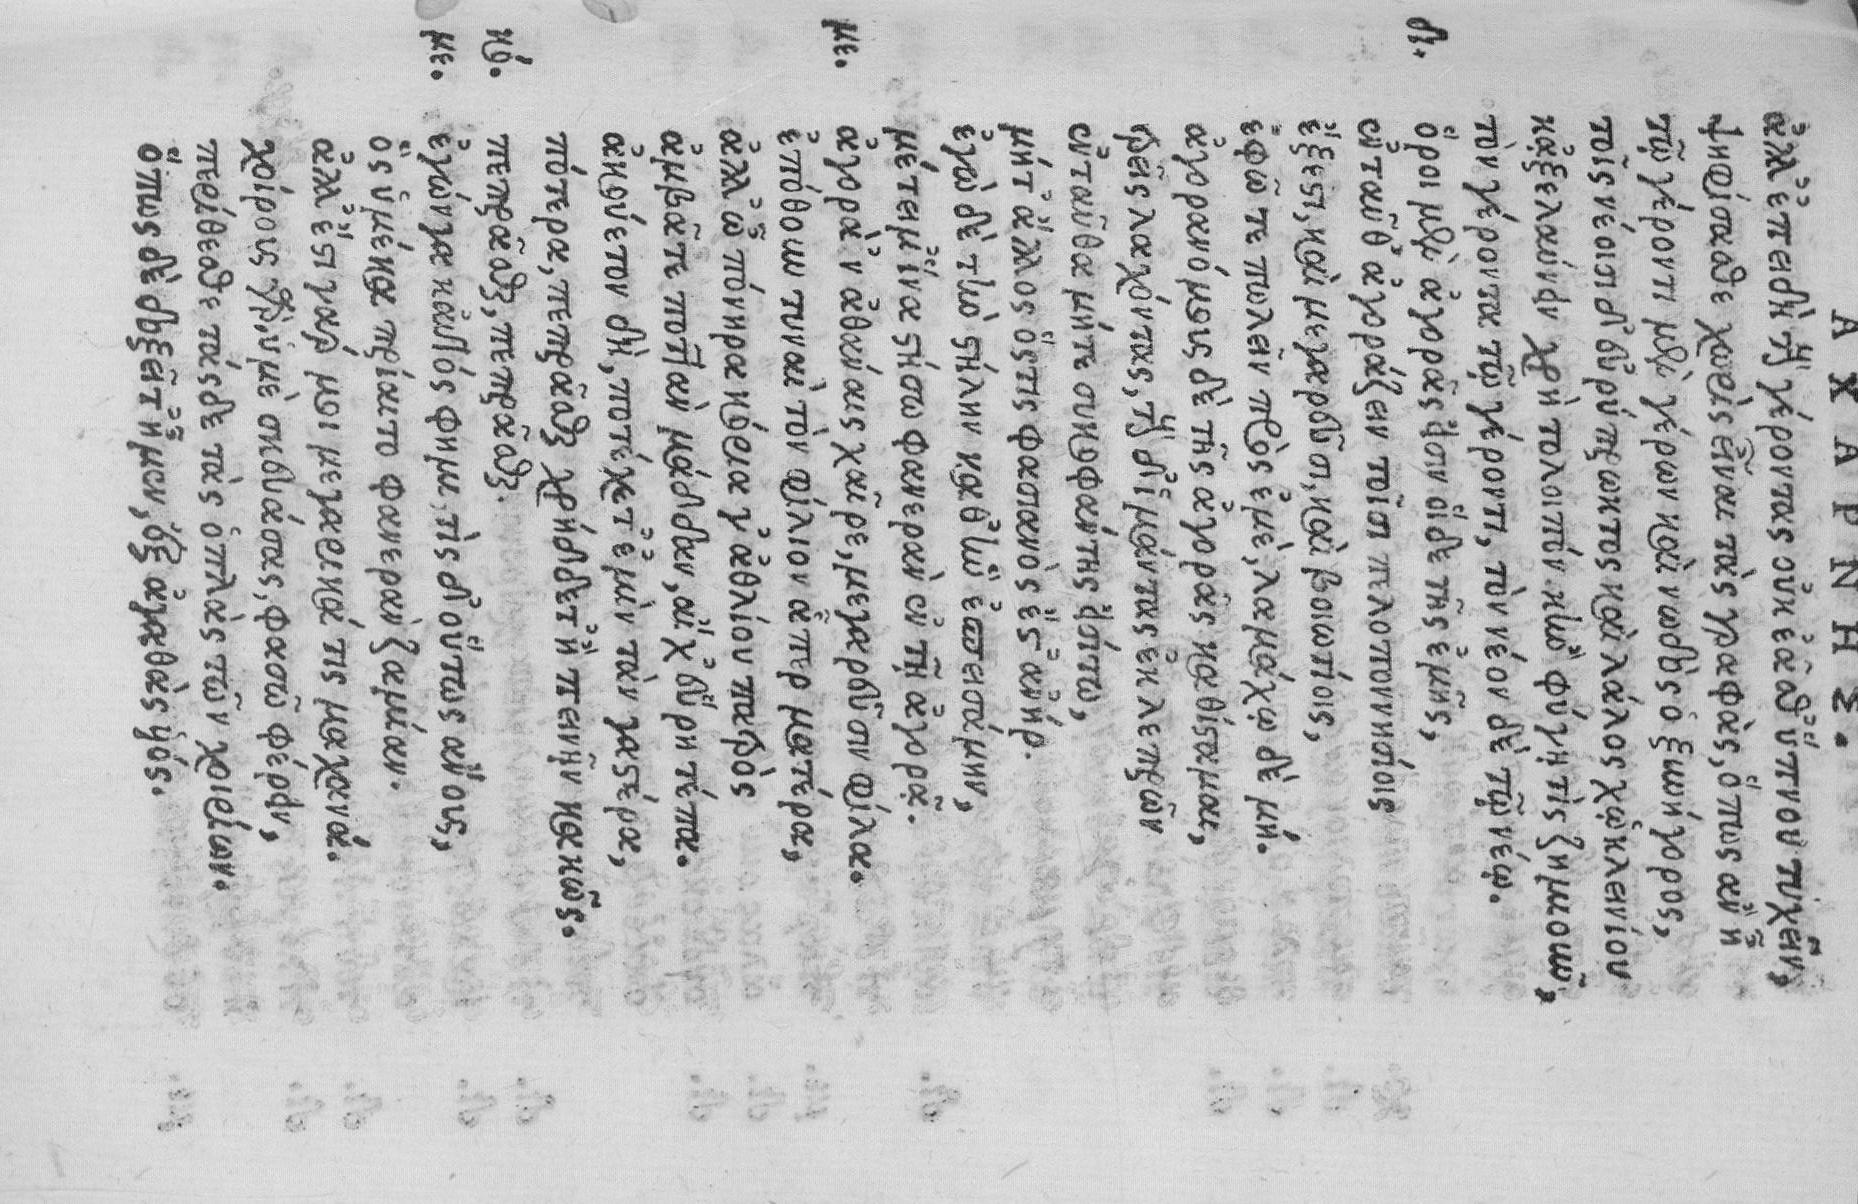 ΑΧΑΡΝΗΣ.
ἀλλ' ἐπειδὴ τοὺς γέροντας οὐκ ἐᾶθ' ὕπνου τυχεῖν,
ψηφίσασθε χωρὶς εἶναι τὰς γραφὰς, ὅπως ἂν ᾖ
τῷ γέροντι μὲν γέρων καὶ νωδὸς ὁ ξυνήγορος,
τοῖς νέοισι δ' εὐρύπρωκτος καὶ λάλος χὠ κλεινίου
κἀξελαύνειν χρὴ τολοιπόν. κἢν φύγῃ τὶς ζημιοῦν,
τὸν γέροντα τῷ γέροντι, τὸν νέον δὲ τῷ νέῳ.
δι. ὅροι μὲν ἀγορᾶς εἰσιν οἵδε τῆς ἐμῆς,
ἐνταῦθ' ἀγοράζειν πᾶσι πελοποννησίοις
ἔξεστι, καὶ μεγαρεῦσι, καὶ βοιωτίοις,
ἐφῶ τε πωλεῖν πρὸς ἐμὲ, λαμάχῳ δὲ μή.
ἀγορανόμους δὲ τῆς ἀγορᾶς καθίσταμαι,
τρεῖς λαχόντας, τοὺς δ' ἱμάντας ἐκ λεπρῶν
ἐνταῦθα μήτε συκοφάντης εἰσίτω,
μήτ' ἄλλος ὅστις φασιανός ἐστ' ἀνήρ.
ἐγὼ δὲ τὴν στήλην καθ' ἣν ἐσπεισάμην,
μέτειμ' ἵνα στήσω φανερὰν ἐν τῇ ἀγορᾷ.
με. ἀγορὰ 'ν ἀθάναις χαῖρε, μεγαρεῦσιν φίλα.
ἐπόθουν τυναὶ τὸν φίλιον ᾇπερ ματέρα,
ἀλλ' ὦ πόνηρα κόρια γ' ἀθλίου πατρὸς
ἀμβᾶτε ποττὰν μάδδαν, αἴχ' εὕρητέ πα.
ἀκούετον δὴ, ποττέχετ' ἐμὶν τὰν γαστέρα,
πότερα, πεπρᾶσθαι χρήδδετ' ἢ πεινῆν κακῶς.
κό. πεπρᾶσθαι, πεπρᾶσθαι.
με. ἐγώνγα καὐτός φημι. τὶς δ' οὕτως ἄνους,
ὃς ὑμέ κα πρίαιτο φανερὰν ζαμίαν.
ἀλλ' ἔστι γάρ μοι μεγαρικά τις μαχανά.
χοίρους γὰρ ὑμὲ σκευάσας, φασῶ φέρειν,
περίθεσθε τάσδε τὰς ὁπλὰς τῶν χοιρίων.
ὅπως δὲ δοξεῖτ' ἦμεν, ἐξ ἀγαθᾶς ὑός.